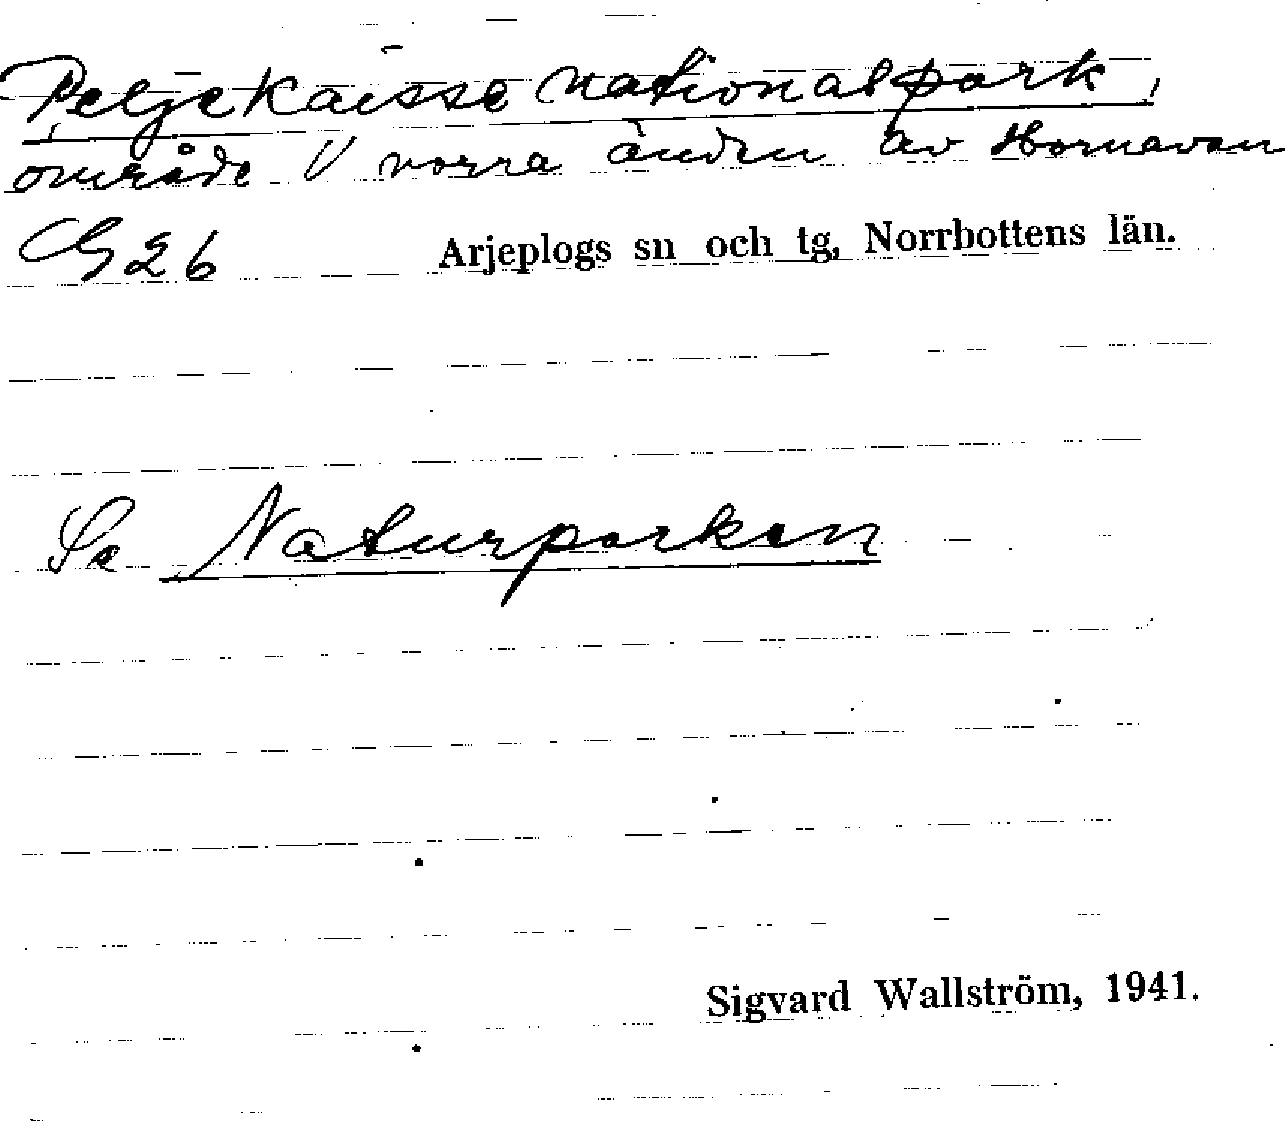 Peljekaisse nationalpark,
område V norra änden av Hornavan
G26 Arjeplogs sn och tg, Norrbottens län.
Se Naturparken
Sigvard Wallström, 1941.